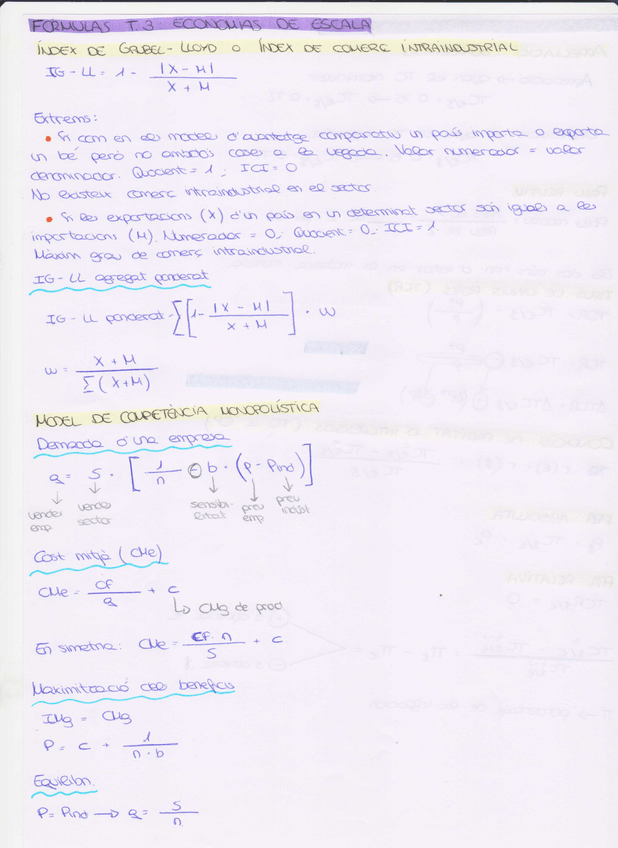 FORMULAS T.3 ECONOMIAS DE ESCALA
ÍNDEX DE GRUBEL-LLOYD O ÍNDEX DE COMERÇ INTRAINDUSTRIAL
IG-LL = 1 - |X - M| / X + M
Extrems:
• Si com en els models d'avantatge comparatiu un país importa o exporta
un bé però no ambdós coses a la vegada. Valor numerador = valor
denominador. Quocient = 1; ICI = 0
No existeix comerç intraindustrial en el sector
• Si les exportacions (X) d'un país en un determinat sector són iguals a les
importacions (M). Numerador = 0; Quocient = 0; ICI = 1
Màxim grau de comerç intraindustrial.
IG-LL agregat ponderat
IG-LL ponderat = ∑ [1 - |X - M| / X + M] · W
w = X + M / ∑(X+M)
MODEL DE COMPETÈNCIA MONOPOLÍSTICA
Demanda d'una empresa
q = S · [1/n - b · (p - Pind)]
vendes emp vendes sector sensibilitat preu emp preu indust
Cost mitjà (CMe)
CMe = CF / q + c
↳ CMg de prod
En simetria: CMe = CF · n / S + c
Maximització del benefici
IMg = CMg
P = c + 1 / n · b
Equilibri
P = Pind → q = S / n